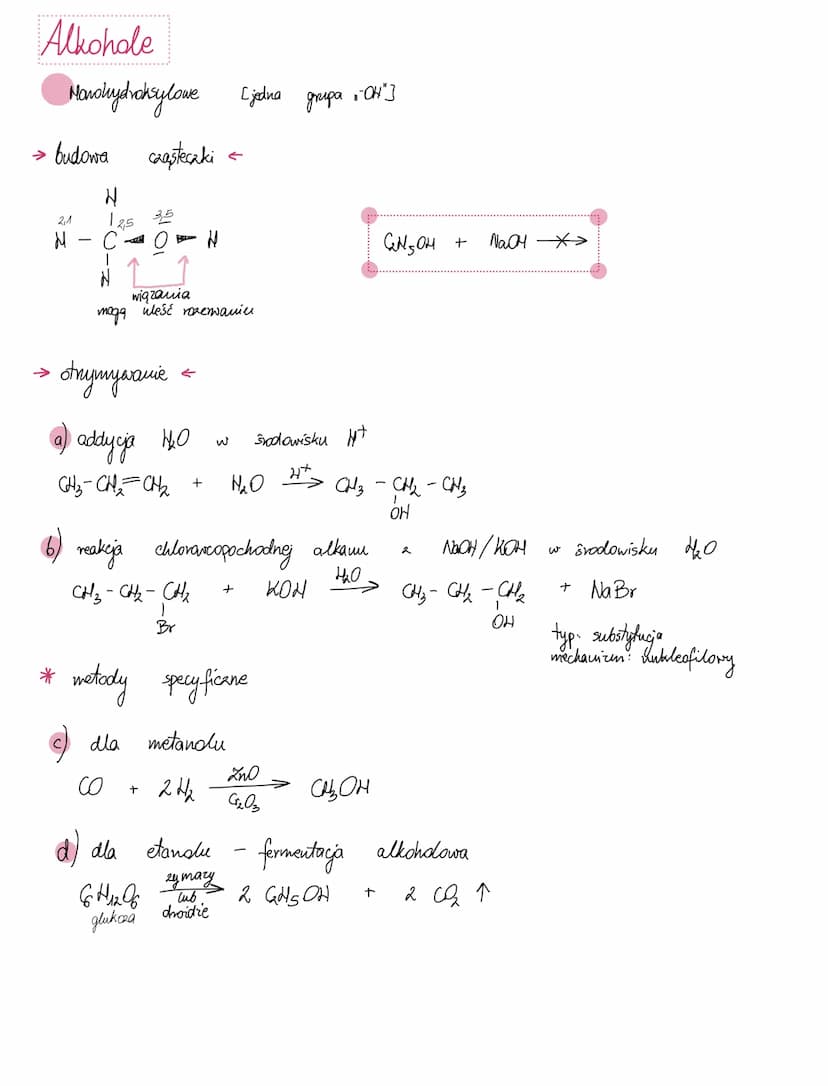 Alkohole
Monohydroksylowe [jedna grupa „-OH"]
→ budowa cząsteczki ←
H
2,1 | 2,5 3,5
H – C ◄ O ► H
|
H
wiązania
mogą uleść rozerwaniu
C₂H₅OH + NaOH —X→
→ otrzymywanie ←
a) addycja H₂O w środowisku H⁺
CH₃–CH₂=CH₂ + H₂O —H⁺→ CH₃ – CH₂ – CH₃
|
OH
b) reakcja chlorowcopochodnej alkanu z NaOH/KOH w środowisku H₂O
CH₃ – CH₂ – CH₂ + KOH —H₂O→ CH₃ – CH₂ – CH₂ + NaBr
| |
Br OH
typ. substytucja
mechanizm: nukleofilowy
* metody specyficzne
c) dla metanolu
CO + 2H₂ —ZnO/Cr₂O₃→ CH₃OH
d) dla etanolu – fermentacja alkoholowa
C₆H₁₂O₆ —zymazy lub drożdże→ 2 C₂H₅OH + 2 CO₂ ↑
glukoza